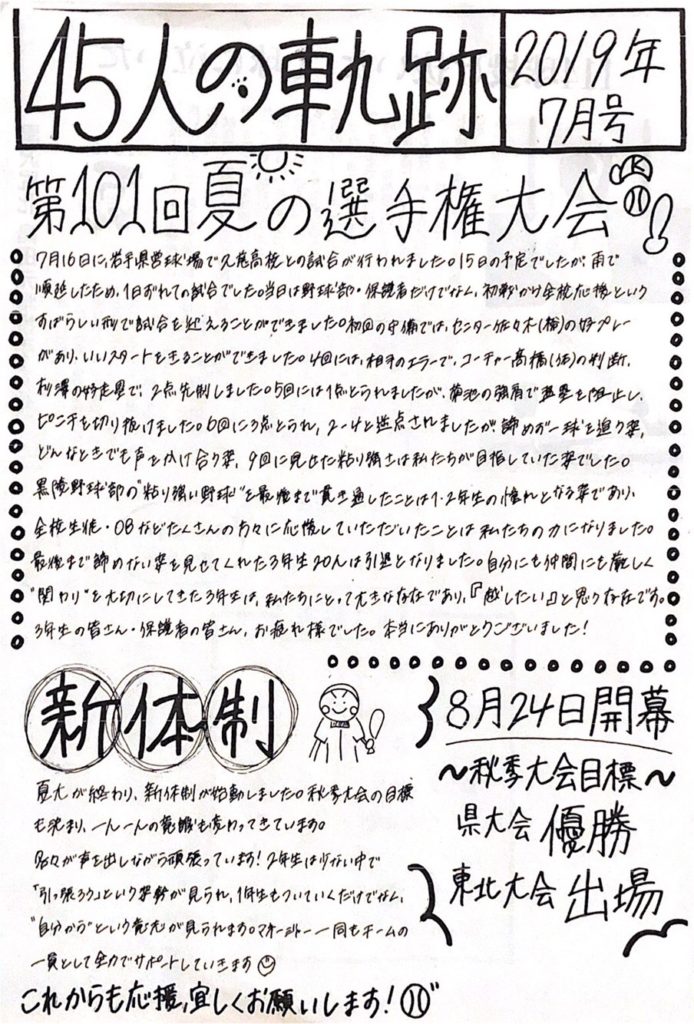 45人の軌跡
2019年
7月号
第101回夏の選手権大会
7月16日に、岩手県営球場で久慈高校との試合が行われました。15日の予定でしたが、雨で
順延したため、1日おくれての試合でした。当日は野球部・保護者だけでなく、初戦から全校応援という
すばらしい形で試合を迎えることができました。初回の守備では、センター佐々木(横)の好プレー
があり、いいスタートをきることができました。4回には、相手のエラーで、コーチャー高橋(佑)の判断、
杉澤の好走塁で、2点先制しました。5回には1点とられましたが、菊池の強肩で盗塁を阻止し、
ピンチを切り抜けました。6回に3点とられ、2-4と逆点されましたが諦めず一球を追う姿、
どんなときでも声をかけ合う姿、9回に見せた粘り強さは私たちが目指していた姿でした。
黒陵野球部の"粘り強い野球"を最後まで貫き通したことは1・2年生の憧れとなる姿であり、
全校生徒・OBなどたくさんの方々に応援していただいたことは私たちの力になりました。
最後まで諦めない姿を見せてくれた3年生20人は引退となりました。自分にも仲間にも厳しく
"関わり"を大切にしてきた3年生は、私たちにとって大きな存在であり、『越したい』と思う存在です。
3年生の皆さん・保護者の皆さん、お疲れ様でした。本当にありがとうございました!
新体制
夏大が終わり、新体制が始動しました。秋季大会の目標
も決まり、一人一人の覚悟も変わってきています。
各々が声を出しながら頑張っています!2年生は少ない中で
「引っ張ろう」という姿勢が見られ、1年生もついていくだけでなく、
"自分から"という意志が見られます。マネージャー一同もチームの
一員として全力でサポートしていきます
これからも応援、宜しくお願いします!
8月24日開幕
〜秋季大会目標〜
県大会 優勝
東北大会 出場